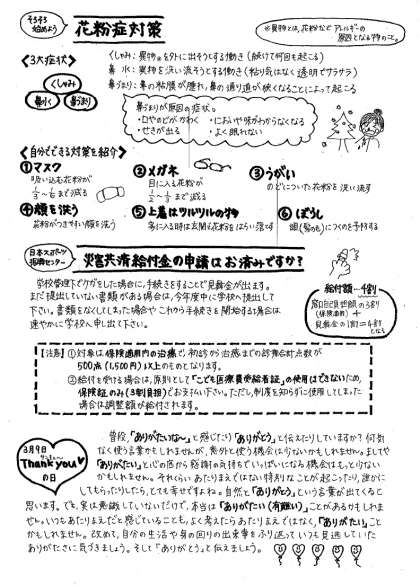 そろそろ
始めよう
花粉症対策
※異物とは、花粉など アレルギーの
原因となる物のこと。
〈3大症状〉
くしゃみ
鼻水
鼻づまり
くしゃみ：異物※を外に出そうとする働き（続けて何回も起こる）
鼻水：異物を洗い流そうとする働き（粘り気はなく透明でサラサラ）
鼻づまり：鼻の粘膜が腫れ、鼻の通り道が狭くなることによって起こる
鼻づまりが原因の症状。
・口やのどがかわく ・においや味がわからなくなる
・せきが出る ・よく眠れない
〈自分でできる対策を紹介〉
①マスク
吸い込む花粉が
1/3〜1/6まで減る
②メガネ
目に入る花粉が
1/2〜1/3まで減る
③うがい
のどについた花粉を洗い流す
④顔を洗う
花粉がつきやすい顔を洗う
⑤上着はツルツルの物
家に入る時は玄関で花粉をはらい落とす
⑥ぼうし
頭(髪の毛)につくのを予防する
日本スポーツ
振興センター
災害共済給付金の申請はお済みですか？
学校管理下でケガをした場合に、手続きをすることで見舞金が出ます。
まだ提出していない書類がある場合は、今年度中に学校へ提出して
下さい。書類をなくしてしまった場合や これから手続きを開始する場合は
速やかに学校へ申し出て下さい。
給付額…4割
窓口自己負担額の3割
（保険適用）＋
見舞金の1割＝4割
となる
【注意】①対象は保険適用内の治療で、初診から治癒までの診療合計点数が
500点(1,500円)以上のものとなります。
②給付を受ける場合は、原則として「こども医療費受給者証」の使用はできないため、
保険証のみ(3割負担)でお支払い下さい。ただし、制度を知らずに使用してしまった
場合は調整額が給付されます。
3月9日
Thank you
の日
普段、「ありがたいな〜」と感じたり「ありがとう」と伝えたりしていますか？何気
なく使う言葉かもしれませんが、意外と使う機会は少ないかもしれません。ましてや
「ありがたい」と心の底から感謝の気持ちでいっぱいになる機会はもっと少ない
かもしれません。それぐらいあたりまえではない特別なことが起こったり、誰かに
してもらったりしたら、とても幸せですよね。自然と「ありがとう」という言葉が出てくると
思います。でも、実は意識していないだけで、本当は「ありがたい（有難い）」ことがあるかもしれま
せん。いつもあたりまえだと感じていることも、よく考えたらあたりまえではなく、「ありがたい」こと
かもしれません。改めて、自分の生活や身の回りの出来事をふり返って いつも見逃していた
ありがたさに気づきましょう。そして「ありがとう」と伝えましょう。